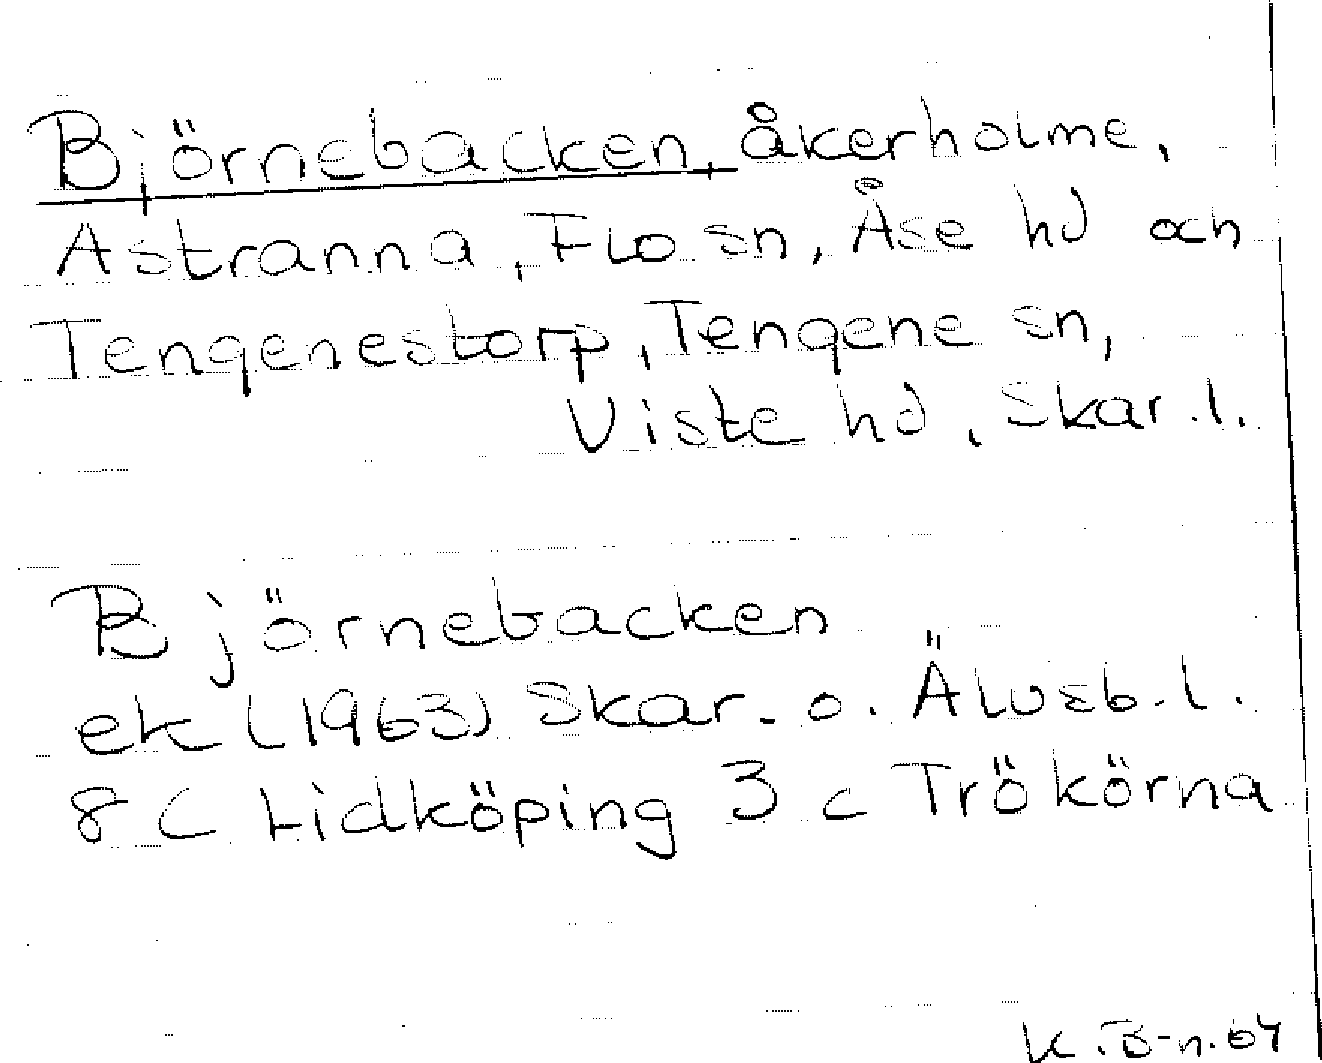 Björnebacken, åkerholme,
Astranna, Flo sn, Åse hd och
Tengenestorp, Tengene sn,
Viste hd, Skar. l.
Björnebacken
ek (1963) Skar. o. Älvsb. l.
8 C Lidköping 3 c Trökörna
K. B-n. 64